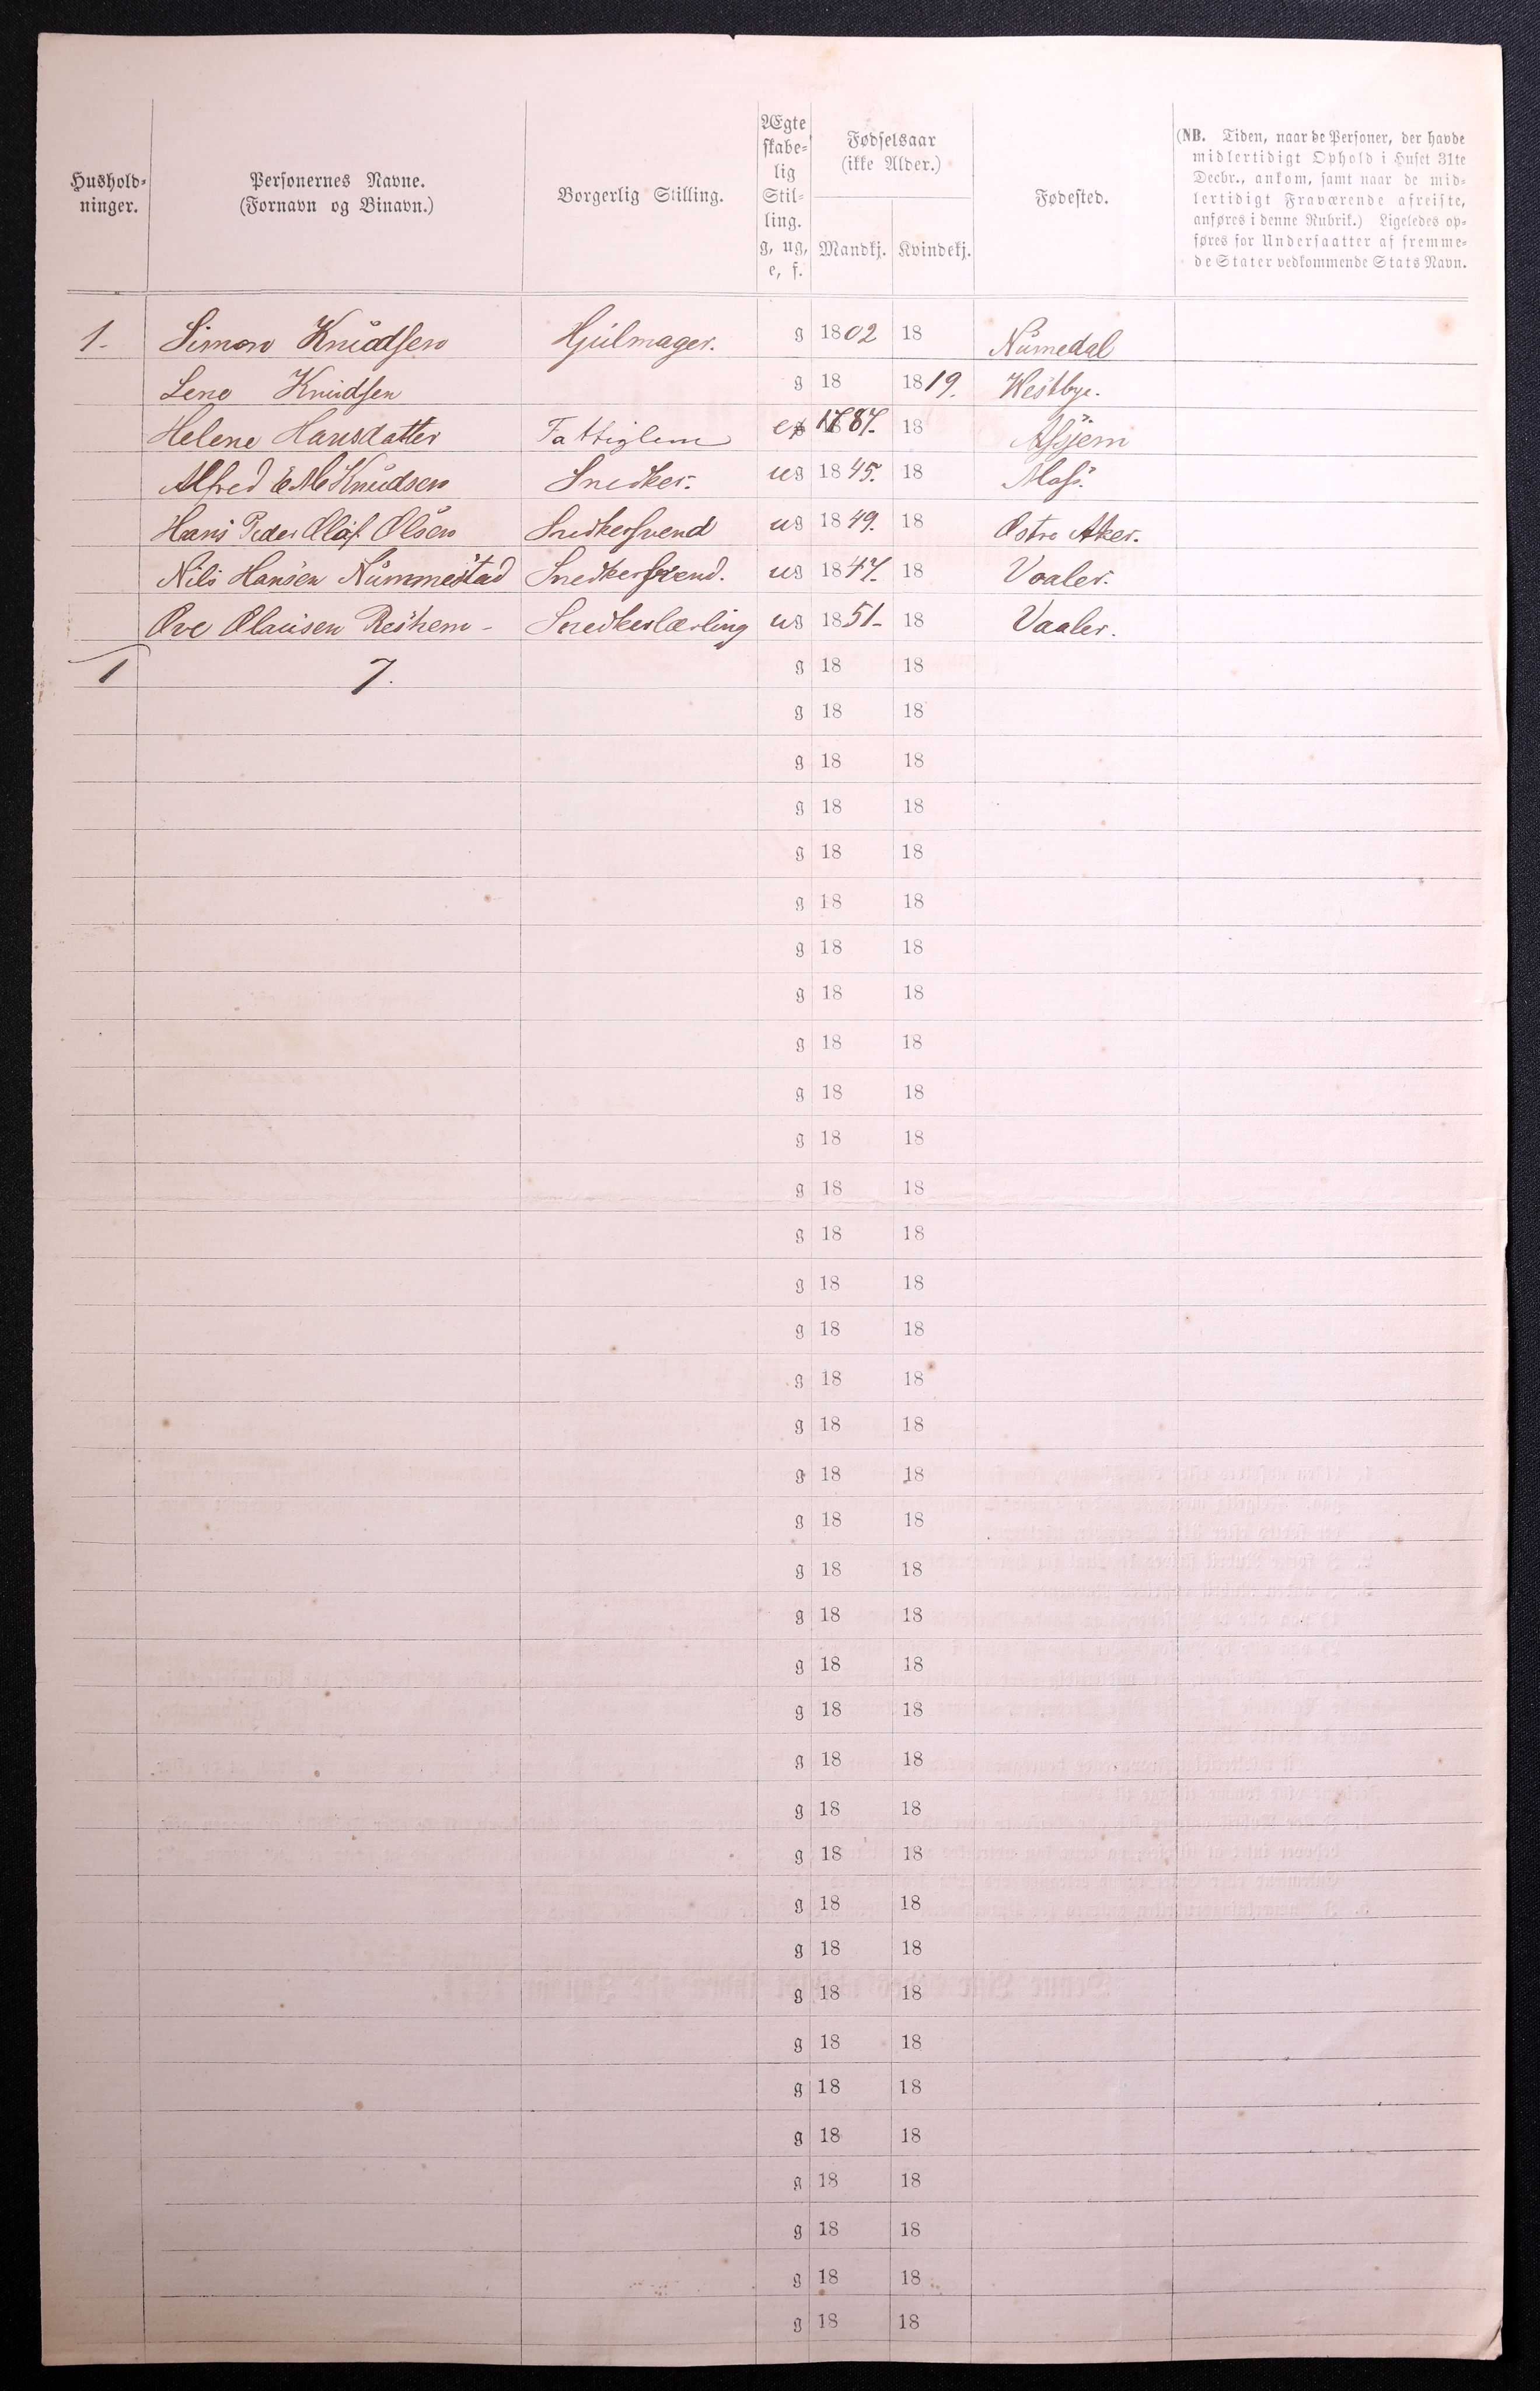 Hushold-
ninger.
Personernes Navne.
(Fornavn og Binavn.)
Borgerlig Stilling.
Ægte
skabe-
lig
Stil-
ling.
g, ug,
e, f.
Fødselsaar
(ikke Alder.)
Mandkj. Kvindekj.
Fødested.
(NB. Tiden, naar de Personer, der havde
midlertidigt Ophold i Huset 31te
Decbr., ankom, samt naar de mid-
lertidigt Fraværende afreiste,
anføres i denne Rubrik.) Ligeledes op-
føres for Undersaatter af fremme-
de Stater vedkommende Stats Navn.
1. Simon Knudsen Hjulmager. g 1802 18 Numedal
Lene Knudsen g 18 1819. Westbye.
Helene Hansdatter Fattiglem e 1787. 18
Alfred E M Knudsen Snedker. ug 1845. 18 Moss.
Hans Peder Olaf Olsen Snedkersvend ug 1849. 18 Østre Aker.
Nils Hansen Nummestad Snedkersvend. ug 1847. 18 Vaaler.
Ove Olausen Reshem - Snedkerlærling ug 1851- 18 Vaaler.
1 7. g 18 18
g 18 18
g 18 18
g 18 18
g 18 18
g 18 18
g 18 18
g 18 18
g 18 18
g 18 18
g 18 18
g 18 18
g 18 18
g 18 18
g 18 18
g 18 18
g 18 18
g 18 18
g 18 18
g 18 18
g 18 18
g 18 18
g 18 18
g 18 18
g 18 18
g 18 18
g 18 18
g 18 18
g 18 18
g 18 18
g 18 18
g 18 18
g 18 18
g 18 18
g 18 18
g 18 18